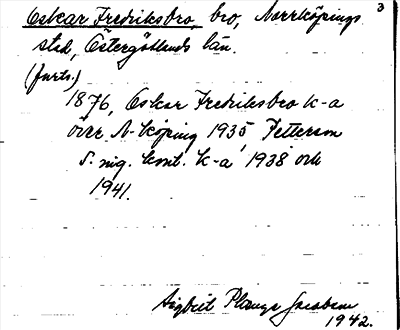 3
Oskar Fredriksbro, bro, Norrköpings
stad, Östergötlands län.
(forts.)
1876, Oskar Fredriksbro k-a
över N-köping 1935, Petterson
S. nig. kont. k-a 1938 och
1941.
Sigbrit Plange Jacobson
1942.